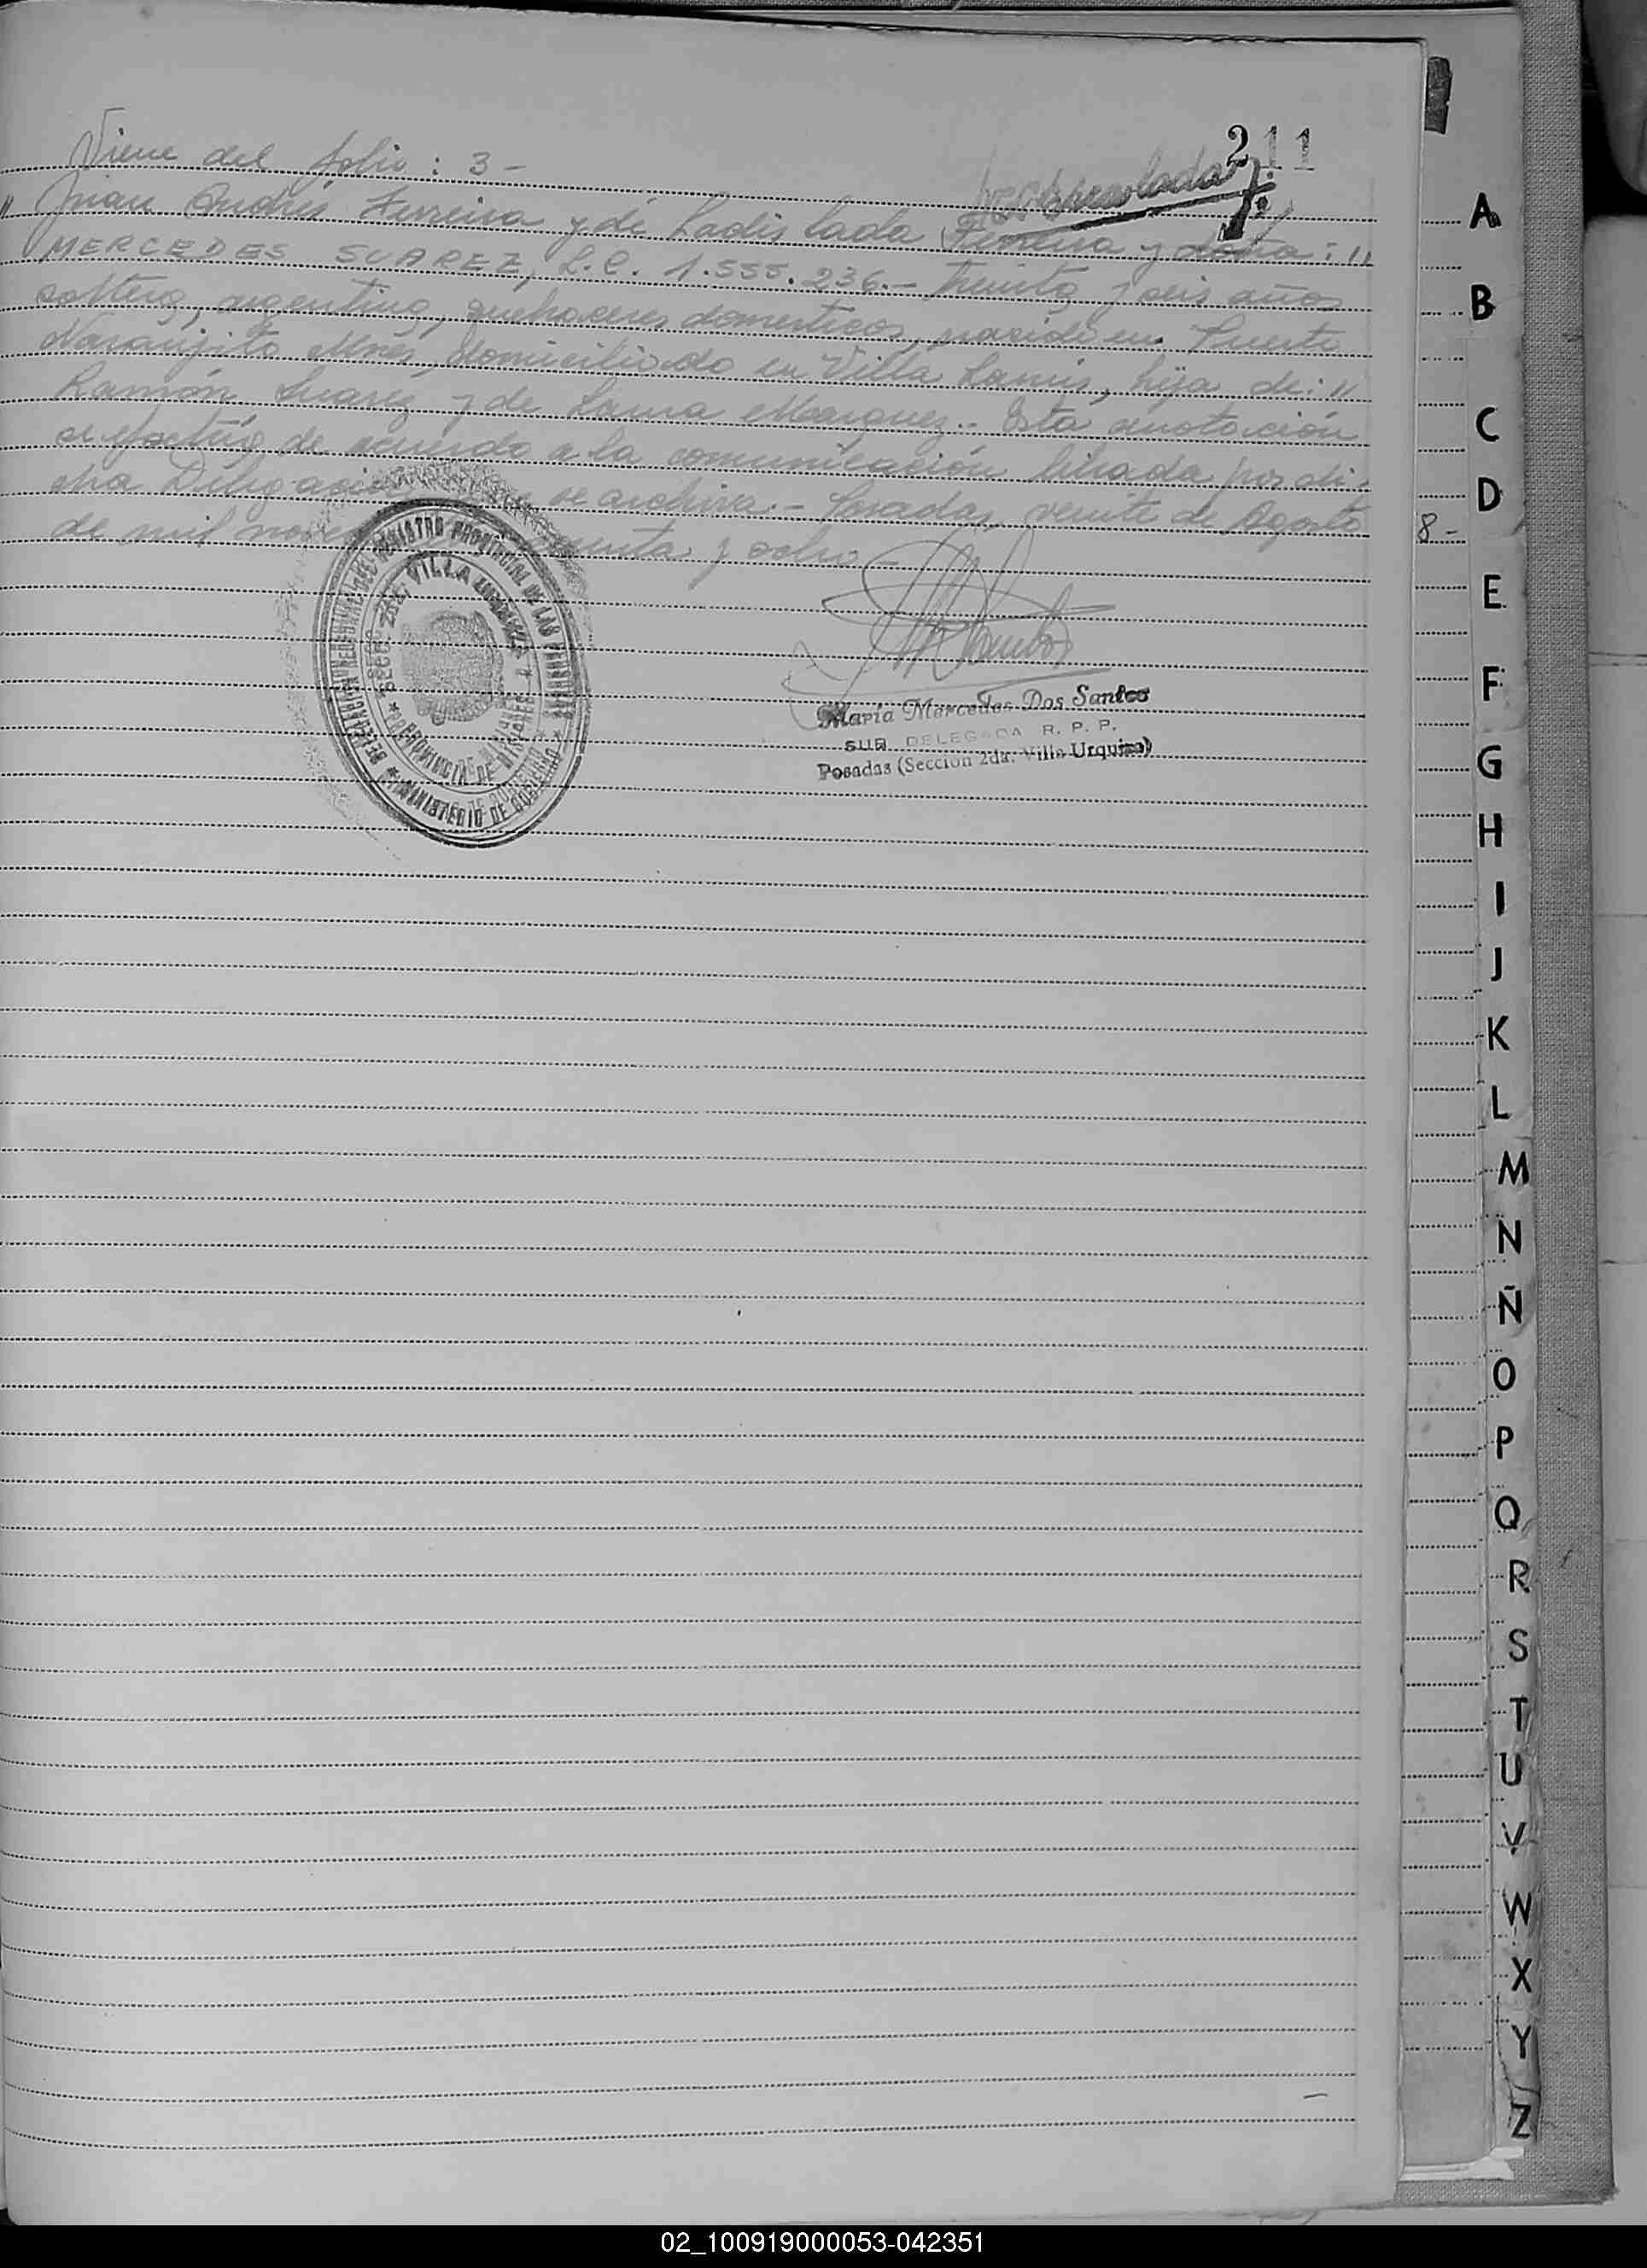 211
Viene del folio: 3-
" Juan Andrés Ferreira y de Ladislada Ferreira y doña: "
MERCEDES SUAREZ, L.C. 1.555.236.- treinta y seis años
soltera, argentina, quehaceres domesticos, nacida en Puerto
Naranjito Mnes, domiciliada en Villa Lanús, hija de: "
Ramón Suarez y de Laura Marquez.- Esta anotación
se efectúa de acuerdo a la comunicación librada por di-
cha que se archiva.- Posadas, veinte de Agosto
de mil y ocho -
8-
VILLA URQUIZA
PROVINCIA DE MISIONES
MINISTERIO DE GOBIERNO
María Mercedes Dos Santos
SUB DELEGADA R. P. P.
Posadas (Sección 2da. Villa Urquiza)
A
B
C
D
E
F
G
H
I
J
K
L
M
N
Ñ
O
P
Q
R
S
T
U
V
W
X
Y
Z
02_100919000053-042351